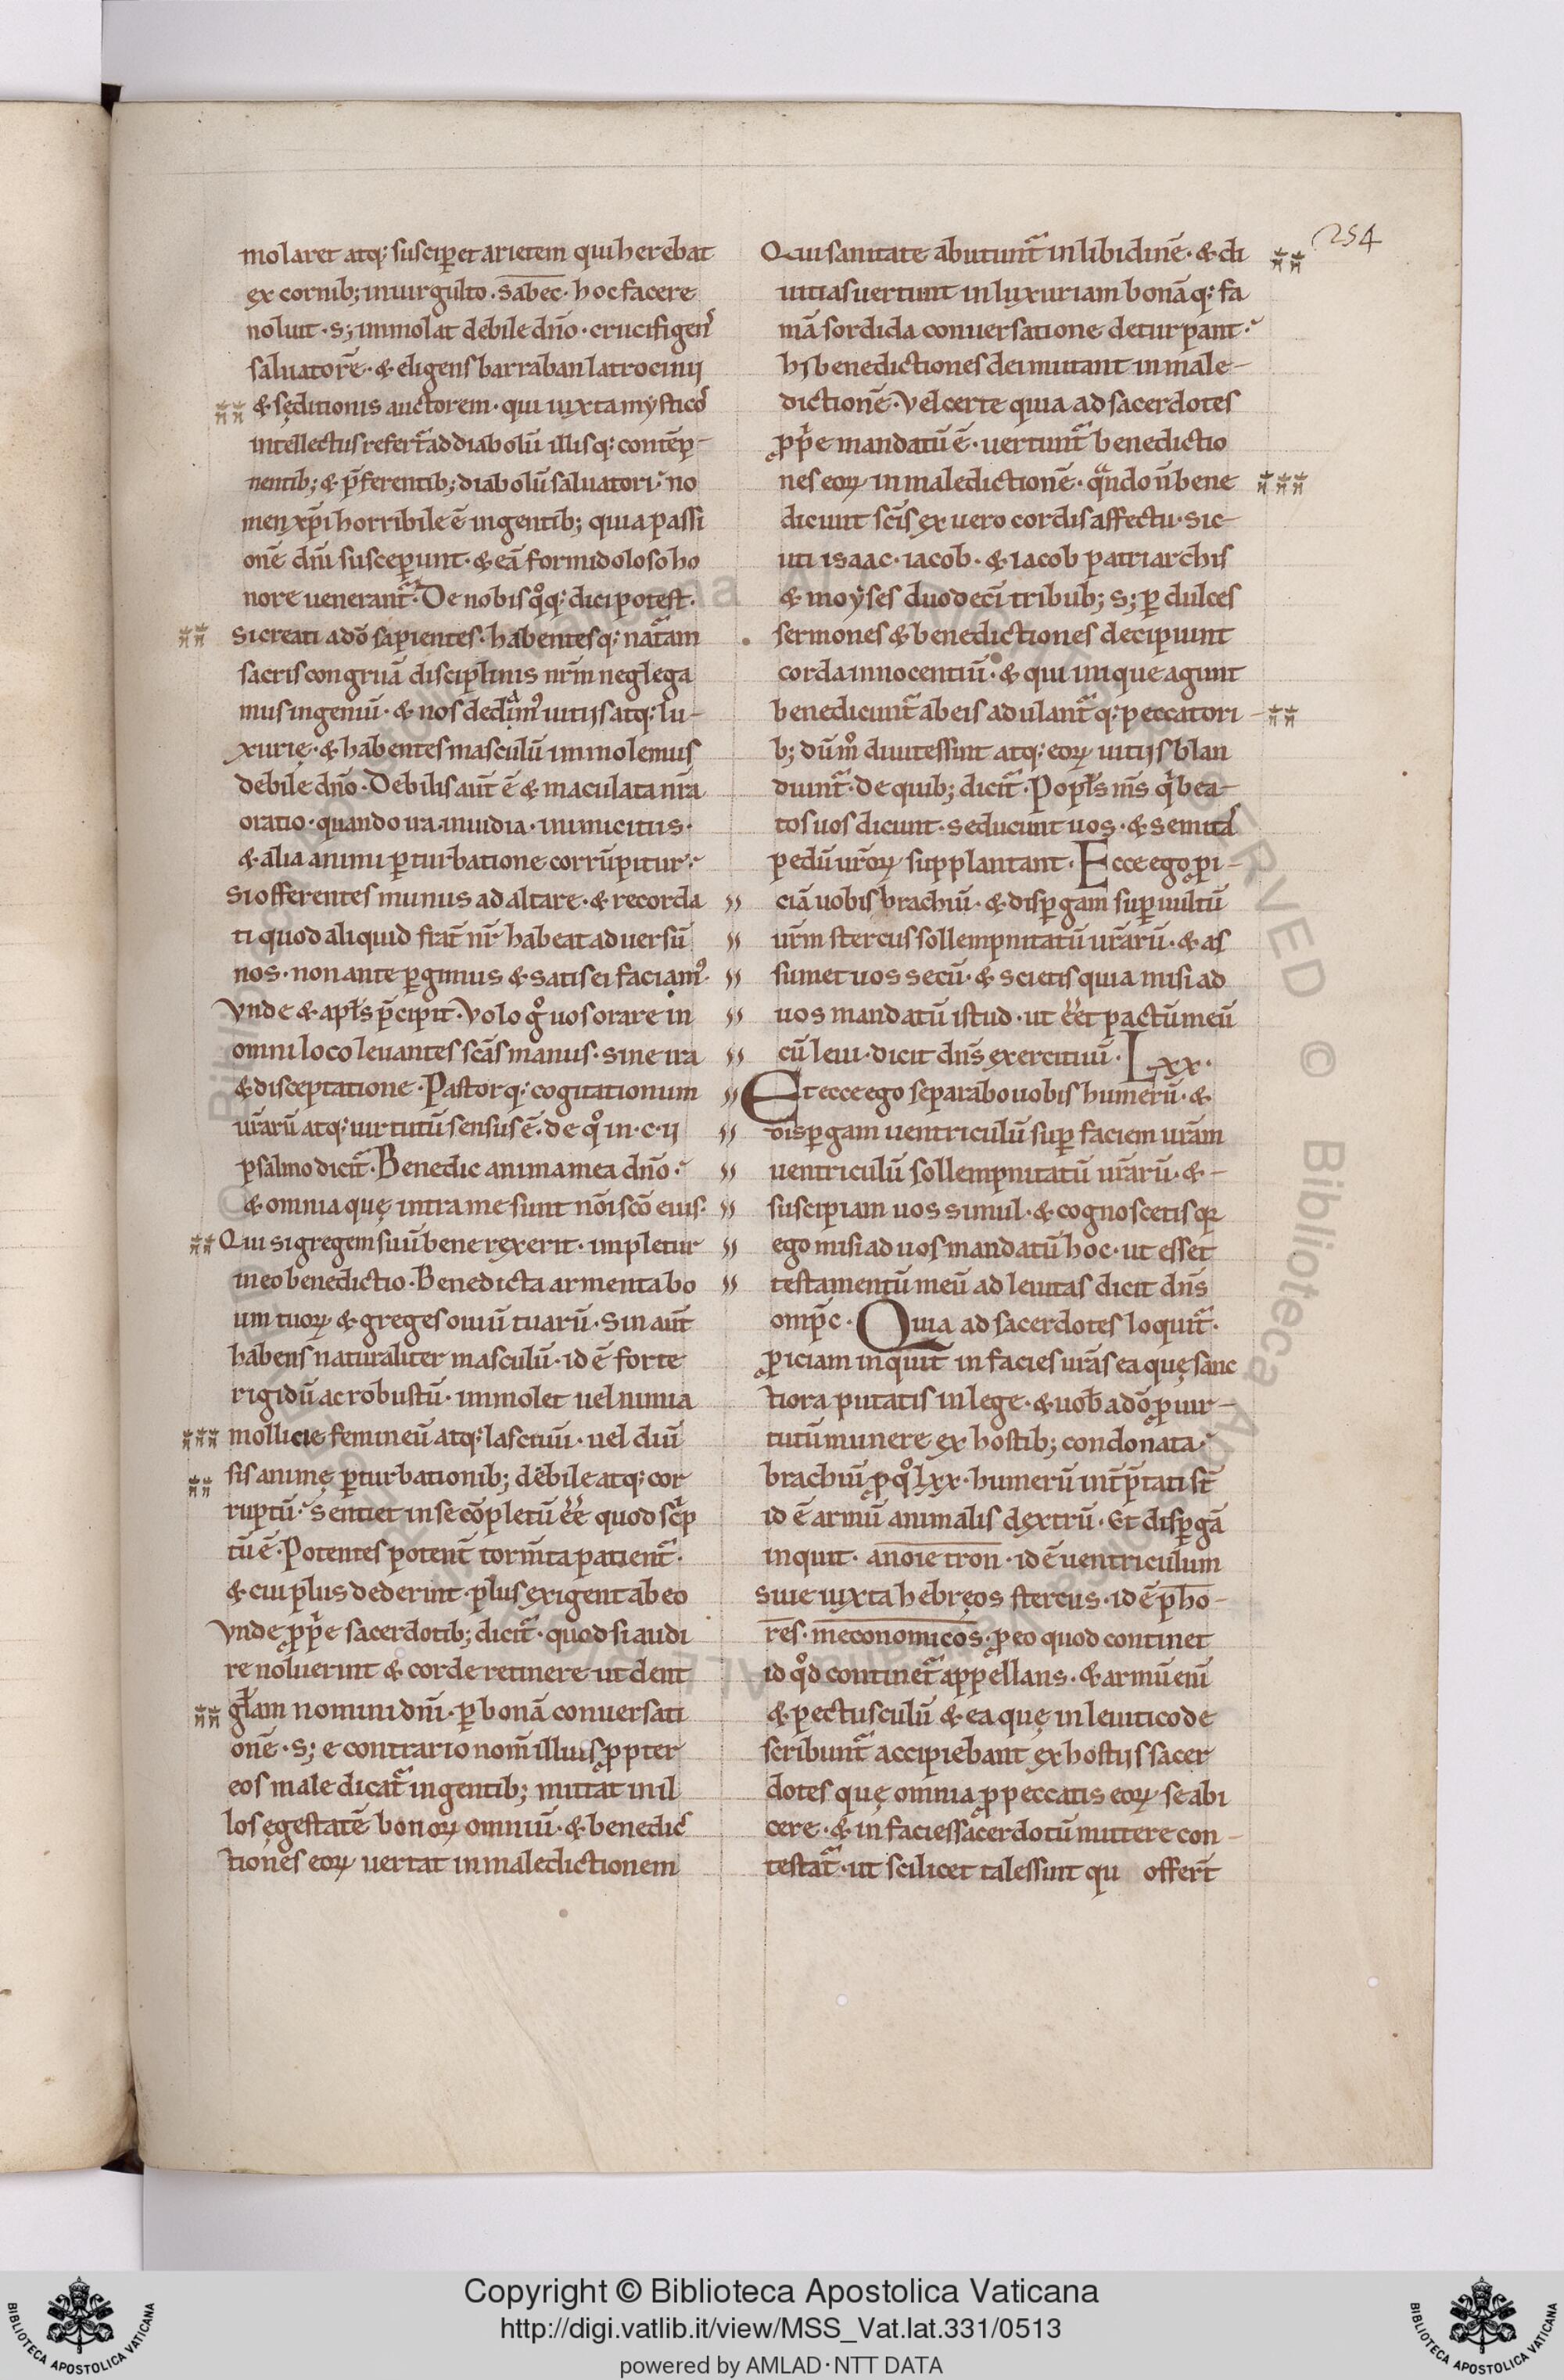 254
molaret atq; suscip̄et arietem qui herebat
ex cornib; in uirgulto · sabec · hoc facere
noluit · s; immolat debile dn̄o · crucifigen̄
saluatorē · & eligens barraban latrocinij
& sęditionis auctorem · qui iuxta mysticos
intellectus refert᷑ ad diabolū illisq; contēp
nentib; & p̄ferentib; diabolū saluatori · no
men xp̄i horribile ē in gentib; quia passi
onē dn̄i suscep̄unt · & eā formidoloso ho
nore uenerant᷑. De nobis qͦq; dici potest.
si creati a dō sapientes · habentesq; nat᷑am
sacris congruā disciplinis nr̄m neglega
mus ingeniū · & nos dedim᷒ uitijs atq; lu-
xurię · & habentes masculū immolemus
debile dn̄o. Debilis aūt ē & maculata nr̄a
oratio · quando ira inuidia · inimicitiis ·
& alia animi p̄turbatione corrūpitur ·
Si offerentes munus ad altare · & recorda
ti quod aliquid frat̄ nr̄ habeat aduersū
nos · non ante p̄gimus & satis ei faciam᷒.
Vnde & apłs p̄cipit. Volo gͦ uos orare in
omni loco leuantes scās manus · sine ira
& disceptatione. Pastorq; cogitationum
ur̄arū atq; uirtutū sensus ē. de qͦ in · c · ij
psalmo dicit᷑. Benedic anima mea dn̄o ·
& omnia quę intra me sunt nōi scō eius.
Qui si gregem suū bene rexerit · impletur
in eo benedictio. Benedicta armenta bo
um tuoꝝ & greges ouiū tuarū. Sin aūt
habens naturaliter masculū · id ē forte
rigidū ac robustū · immolet uel nimia
mollicie femineū atq; lasciuū · uel diū
sis animę p̄turbationib; debile atq; cor
ruptū · Sentiet in se cōpletū ēē quod sc̄p
tū ē. Potentes potent̄ torm̄ta patient᷑.
& cui plus dederint · plus exigent ab eo
Vnde ꝓpͥe sacerdotib; dicit᷑ · quod si audi
re noluerint & corde retinere ut dent
głam nomini dn̄i · p̄ bonā conuersati
onē · s; e contrario nom̄ illius ꝓpter
eos male dicat᷑ in gentib; mittat in il
los egestatē bonoꝝ omniū · & benedic
tiones eoꝝ uertat in maledictionem
Qui sanitate abutunt᷑ in libidinē · & di
uitias uertunt in luxuriam bonāq; fa
mā sordida conuersatione deturpant ·
hi benedictiones dei mutant in male-
dictionē. Vel certe quia ad sacerdotes
ꝓpͥe mandatū ē · uertunt᷑ benedictio
nes eoꝝ in maledictionē · qͣndo n̄ bene
dicunt scīs ex uero cordis affectu · sic-
uti isaac · iacob · & iacob patriarchis
& moyses duodecī tribub; s; p̄ dulces
sermones & benedictiones decipiunt
corda innocentiū · & qui inique agunt
benedicunt᷑ ab eis adulant᷑q; peccatori-
b; dūmͦ diuites sint atq; eoꝝ uitijs blan
diunt᷑. De quib; dicit᷑. Popłs m̄s qͥ bea-
tos uos dicunt · seducunt uos · & semitas
pedū ur̄oꝝ supplantant. Ecce ego ꝓi-
ciā uobis brachiū · & disp̄gam sup̄ uultū
ur̄m stercus sollempnitatū ur̄arū · & as
sumet uos secū · & scietis quia misi ad
uos mandatū istud · ut ēēt pactū meū
cū leui · dicit dn̄s exercituū. Lxx.
Et ecce ego separabo uobis humerū · &
disp̄gam uentriculū sup̄ faciem ur̄am
uentriculū sollempnitatū ur̄arū · &-
suscipiam uos simul · & cognoscetis qꝛ
ego misi ad uos mandatū hoc · ut esset
testamentū meū ad leuitas dicit dn̄s
omp̄c. Quia ad sacerdotes loquit᷑.
ꝓiciam inquit in facies ur̄as ea quę sanc
tiora putatis in lege · & uob̄ a dō ꝓ uir-
tutū munere ex hostib; condonata ·
brachiū ꝓ qͦ lxx · humerū int̄p̄tati st̄
id ē armū animalis dextrū. Et disp̄gā
inquit · anoietron · id ē uentriculum
siue iuxta hebręos stercus · id ē pho-
res · meconomicos · ꝓ eo quod continet
id qͦd continet᷑ appellans. & armū enī
& pectusculū & ea quę in leuitico de
scribunt᷑ accipiebant ex hostijs sacer
dotes quę omnia ꝓ peccatis eoꝝ se abi
cere · & in facies sacerdotū mittere con-
testat᷑ · ut scilicet tales sint qui offert̄
Copyright © Biblioteca Apostolica Vaticana
http://digi.vatlib.it/view/MSS_Vat.lat.331/0513
powered by AMLAD · NTT DATA
BIBLIOTECA APOSTOLICA VATICANA
BIBLIOTECA APOSTOLICA VATICANA